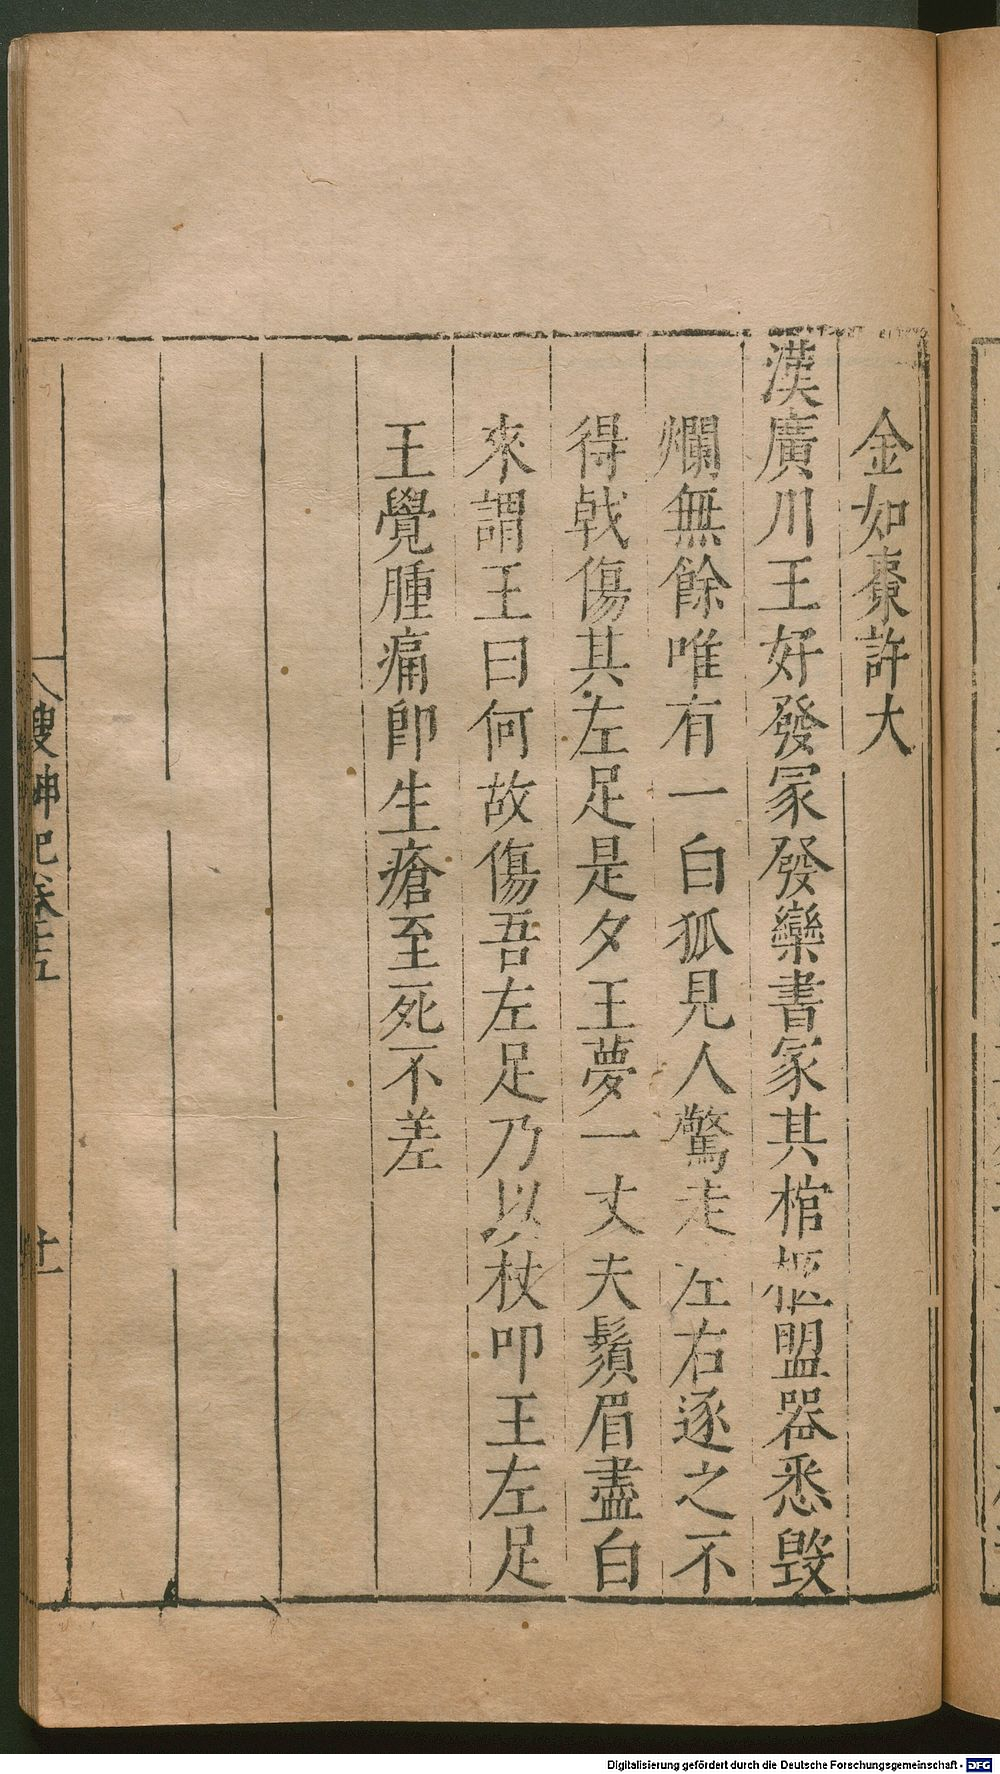 金如棗許大
漢廣川王好發冢發欒書冢其棺柩盟器悉毀
爛無餘唯有一白狐見人驚走左右逐之不
得戟傷其左足是夕王夢一丈夫鬚眉盡白
來謂王曰何故傷吾左足乃以杖叩王左足
王覺腫痛卽生瘡至死不差
搜神記卷十五
十一
Digitalisierung gefördert durch die Deutsche Forschungsgemeinschaft - DFG